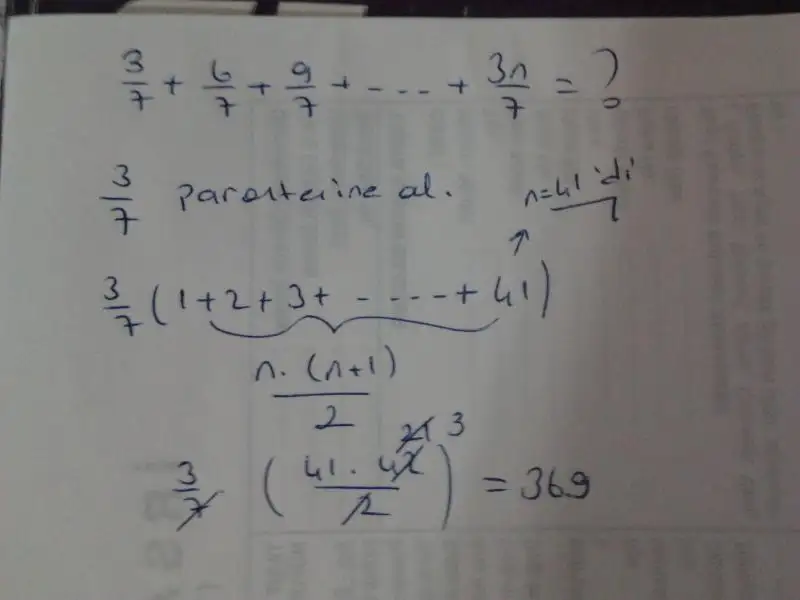 3/7 + 6/7 + 9/7 + - - - - + 3n/7 = ?
3/7 paranterine al. n=41'di
3/7 (1+2+3+ - - - - - + 41)
n. (n+1)
2
21 3
3/7 (41 . 42 / 2) = 369